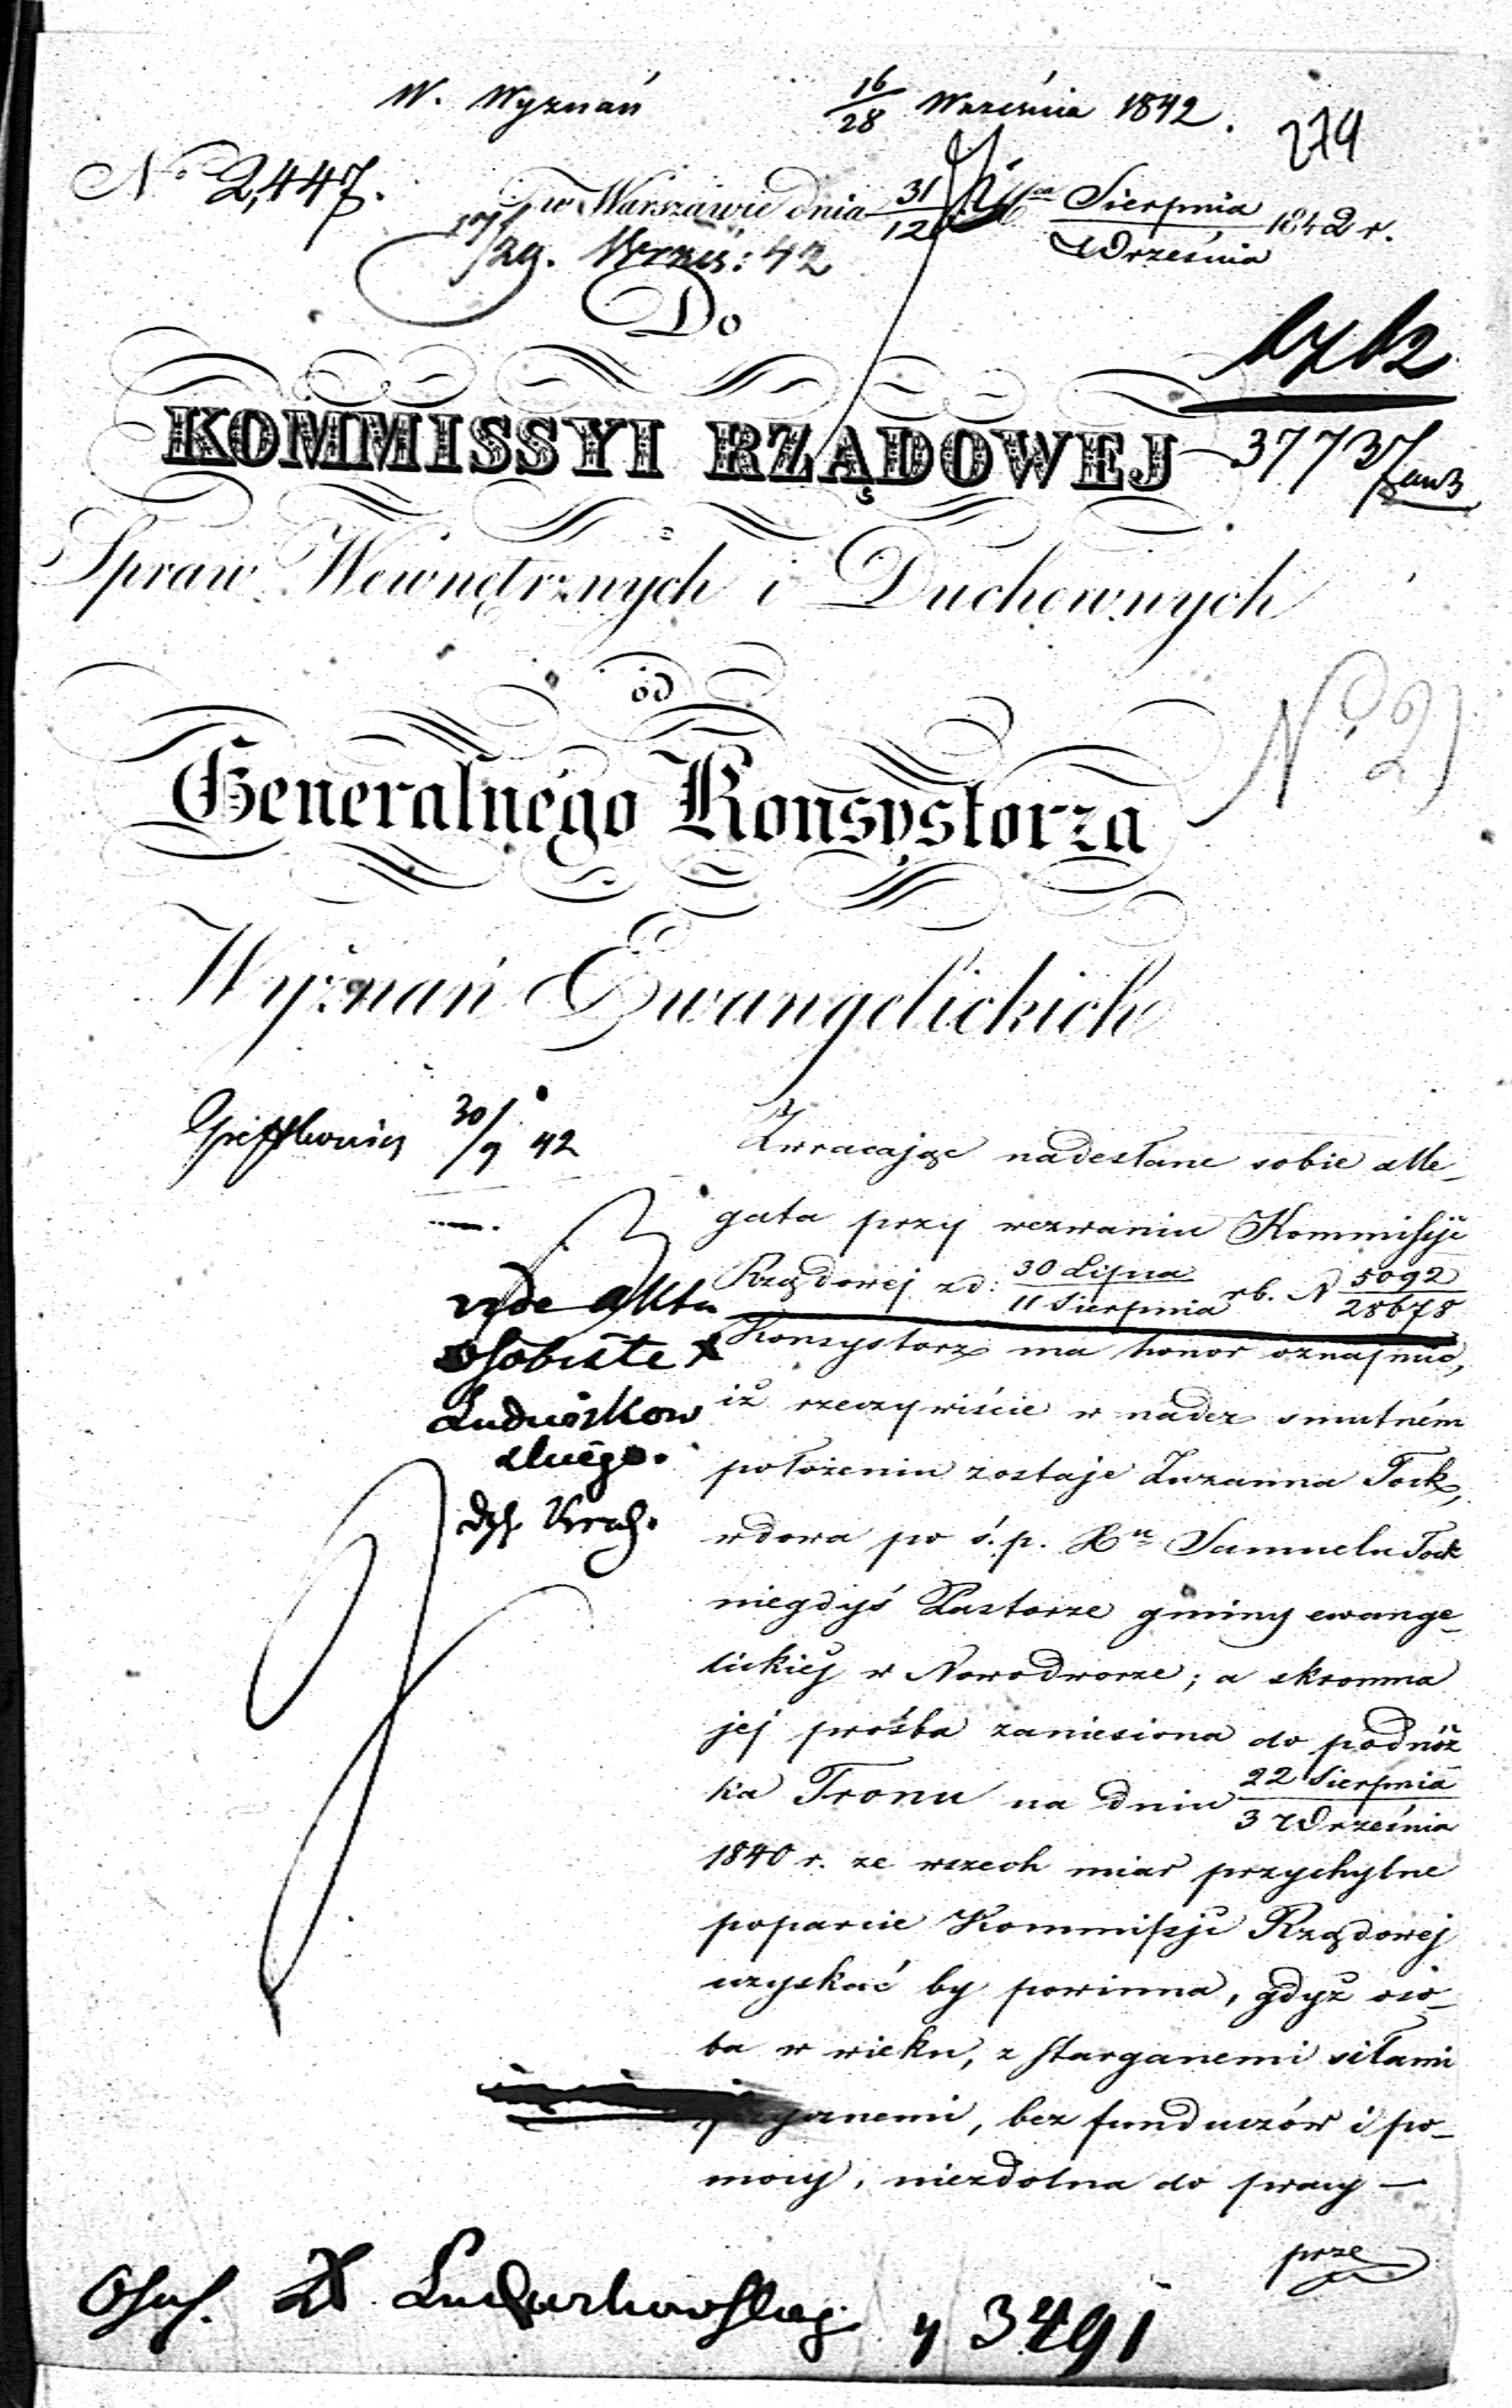 W. Wyznań 16/28 Września 1842.
274
No 2,447.
w Warszawie dnia 31/12 Mca Sierpnia/Września 1842 r.
17/29. Wrześ: 42
Do
KOMMISSYI RZĄDOWEJ
37737
Spraw Wewnętrznych i Duchownych
od
No 2)
Generalnégo Konsystorza
Wyznań Ewangelickich
30/9 42
Zwracając nadesłane sobie alle-
gata przy wezwaniu Kommissyi
Rządowej z d: 30 Lipca/11 Sierpnia rb. N 5092/28678
Konsystorz ma honor oznajmić,
iż rzeczywiście w nader smutném
położeniu zostaje Zuzanna Tock,
wdowa po ś.p. Xu Samuelu Tock
niegdyś Pastorze gminy ewange-
lickiej w Nowodworze; a skromna
jej prośba zaniesiona do podnóż
ka Tronu na dniu 22 Sierpnia/3 Września
1840 r. ze wszech miar przychylne
poparcie Kommissyi Rządowej
uzyskać by powinna, gdyż oso-
ba w wieku, z starganemi siłami
, bez funduszów i po-
mocy, niezdolna do pracy —
prze
vide Akta
osobiste X
Ludwikow
skiego.
3491